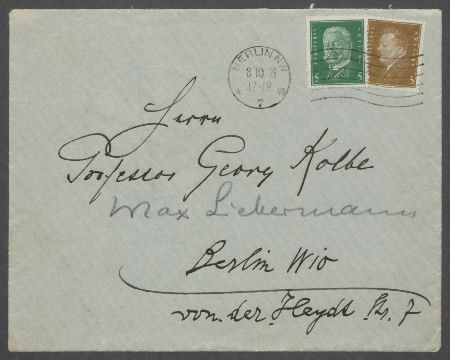 BERLIN NW
8 10
17-18
7
5
Herrn
Professor Georg Kolbe
Max Liebermann
Berlin W10
von der Heydt Str. 7